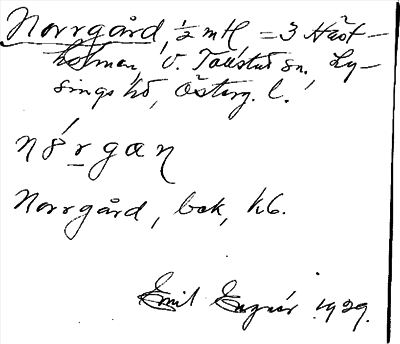 Norrgård, ½ mtl = 3 Häst-
holmen, V. Tollstad sn, Ly-
sings hd, Österg. l.
Norrgård, bok, k6.
Emil 1929.